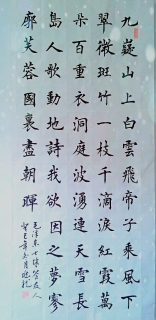 九嶷山上白雲飛帝子乘風下
翠微斑竹一枝千滴淚紅霞萬
朵百重衣洞庭波湧連天雪長
島人歌動地詩我欲因之夢寥
廓芙蓉國裏盡朝暉
毛澤東七律答友人
癸巳年冬月